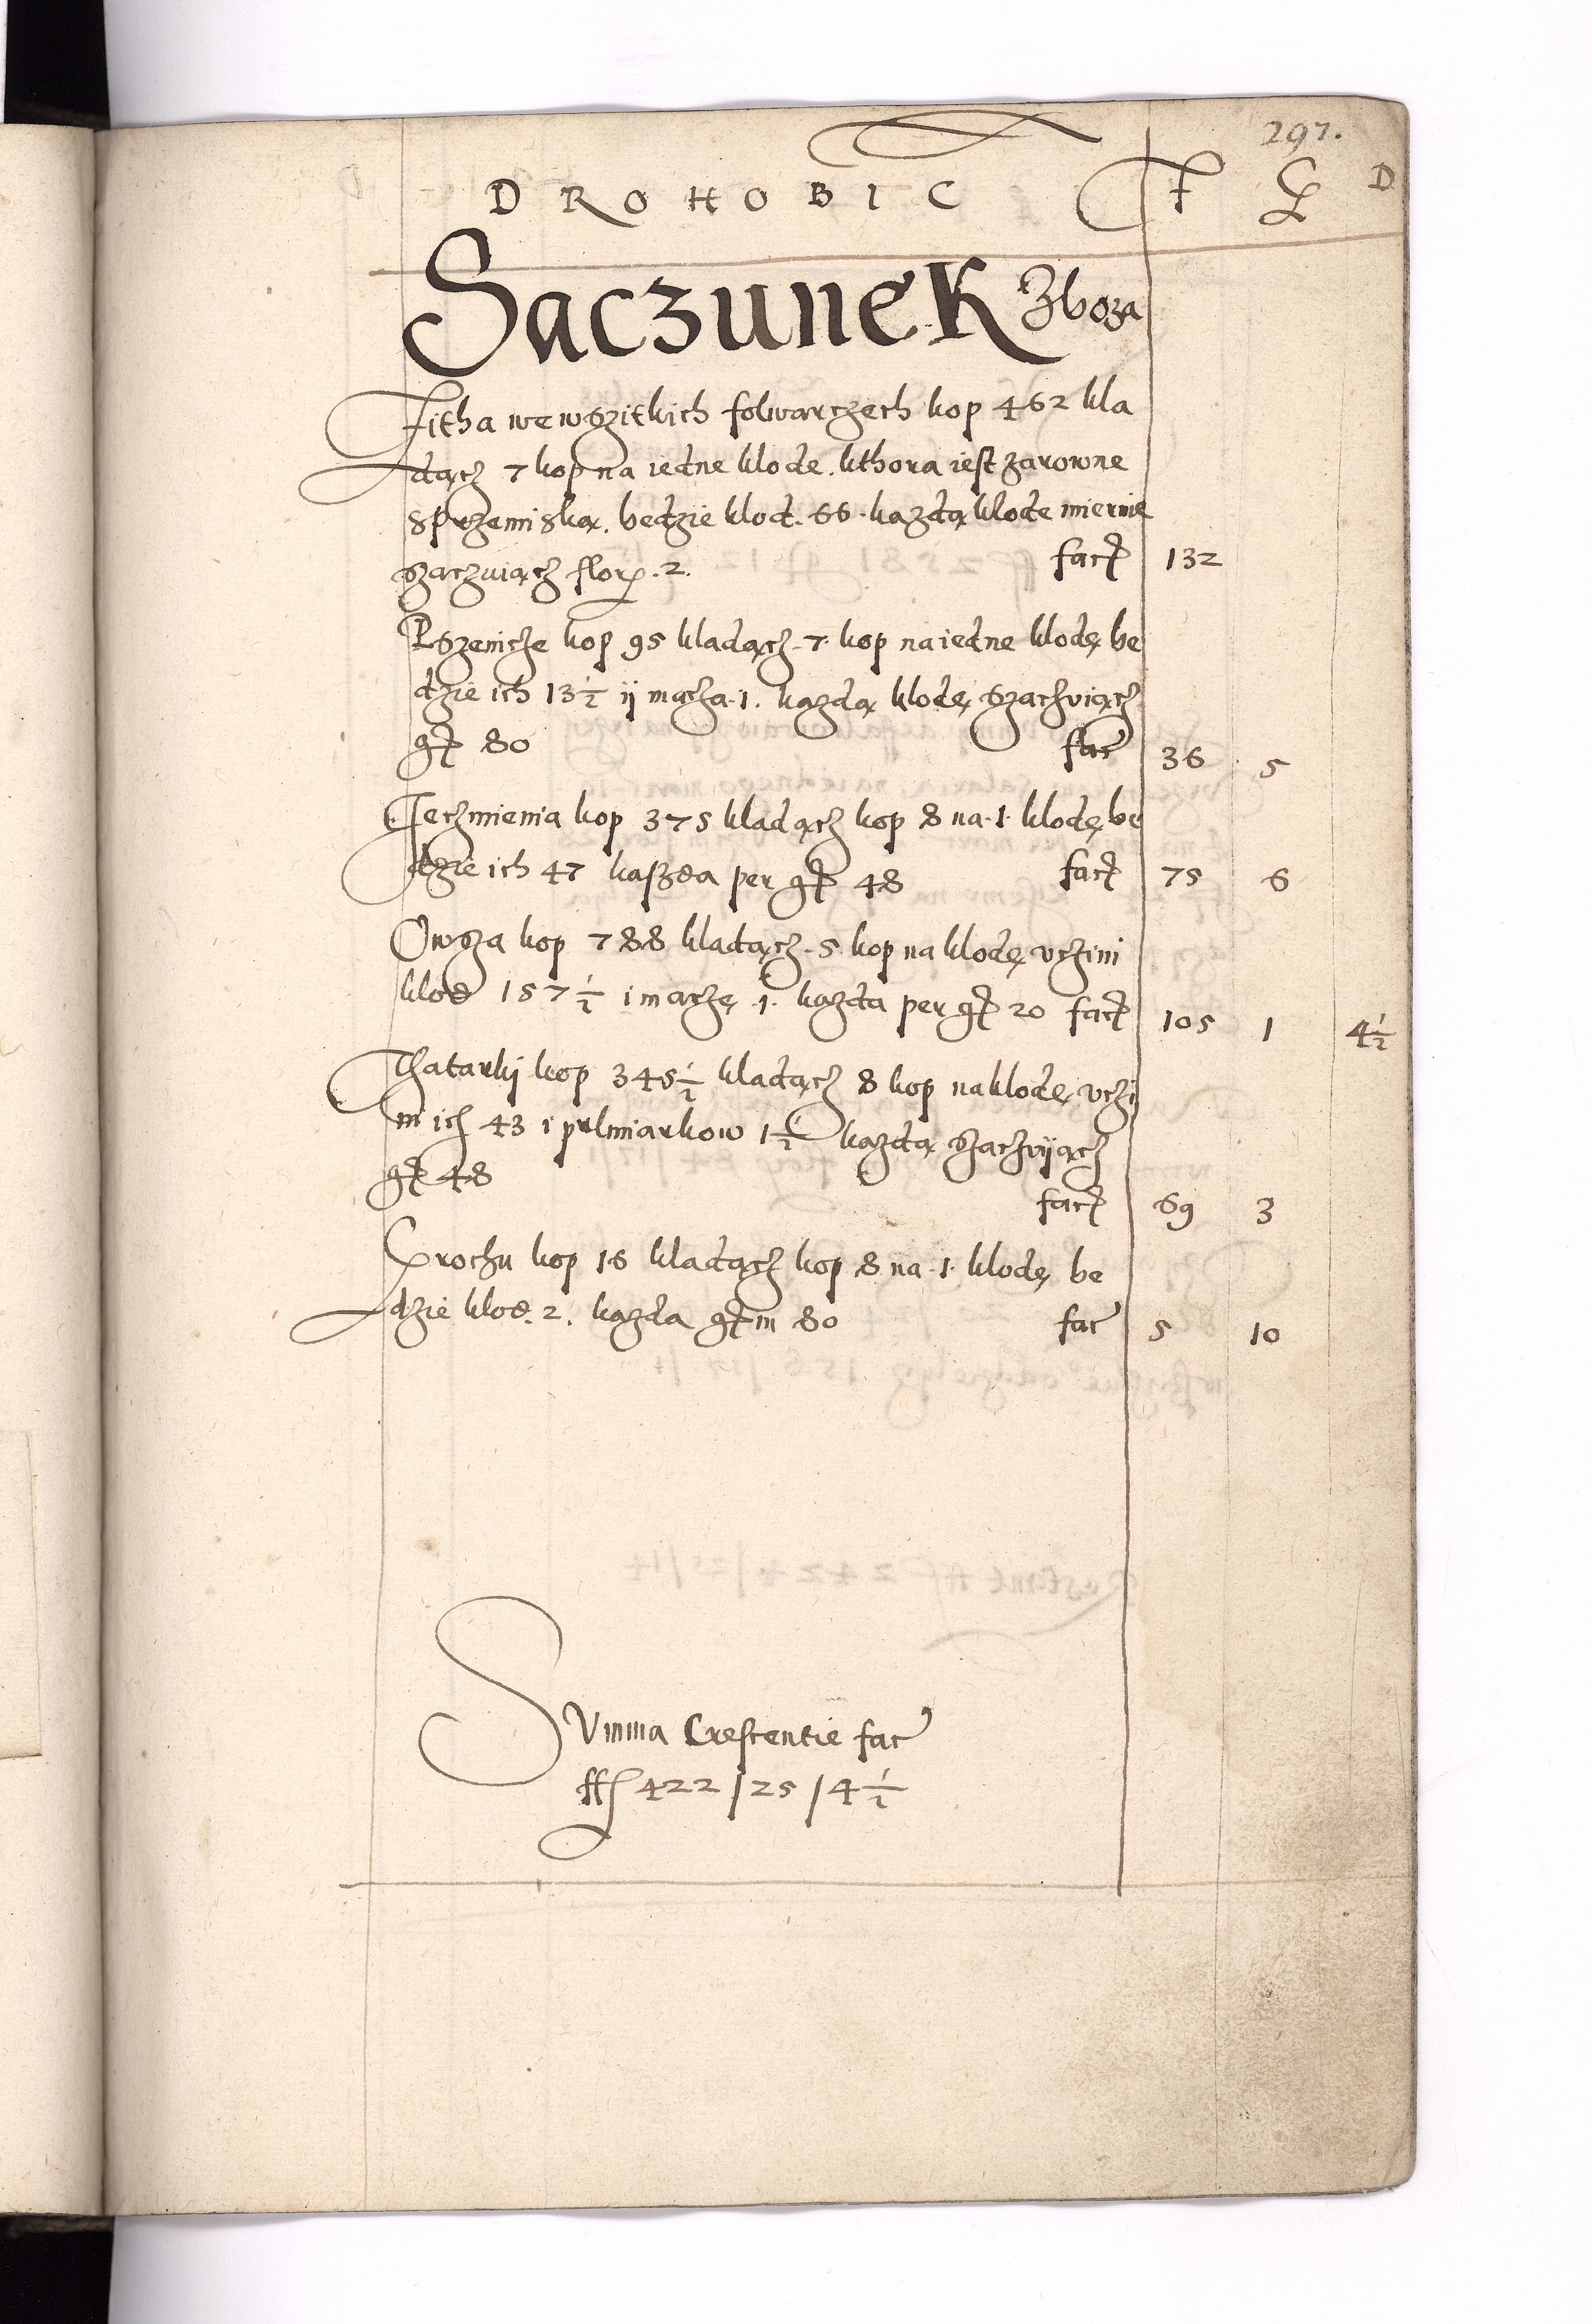 297.
DROHOBIC F G D
Saczunek Zboza
Zitha we wszitkich folwarczech kop 462 kla
dącz 7 kop na iedne klode. kthora iest zarowne
s przemiską. bedzie klod. 66. kazdą klode miernie
szaczuiącz flor. 2. fact 132
Pszenicze kop 95 kladącz. 7. kop na iedne klodę be
dzie ich 13½ ij macza. 1. kazdą klodę szaczviącz
gt 80 fac 36 5
Jeczmienia kop 375 kladącz kop 8 na. 1. klodę be
dzie ich 47 kaszda per gt 48 fact 75 6
Owsza kop 788 kladącz. 5. kop na klodę vczini
klod 157½ i maczę. 1. kazda per gt 20 fact 105 1 4½
Thatarkj kop 345½ kladącz 8 kop na klodę vczi
ni ich 43 i pulmiarkow 1½ kazdą szaczvijącz
gt 48
fact 69 3
Grochu kop 16 kladącz kop 8 na. 1. klodę be
dzie klod. 2. kazda gt in 80 fac 5 10
SVmma Crescentie fac
ff 422/25/4½